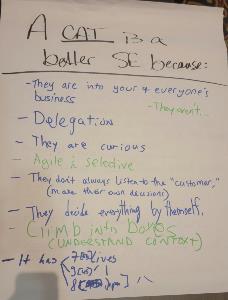 A CAT is a
better SE because:
- They are into your & everyone's
business
- They aren't...
- Delegation
- They are curious
- Agile & selective
- They don't always listen to the "customer,"
(make their own decisions)
- They decide everything by themself.
- Climb into boxes
(UNDERSTAND CONTEXT)
- It has 7 lives
9
8